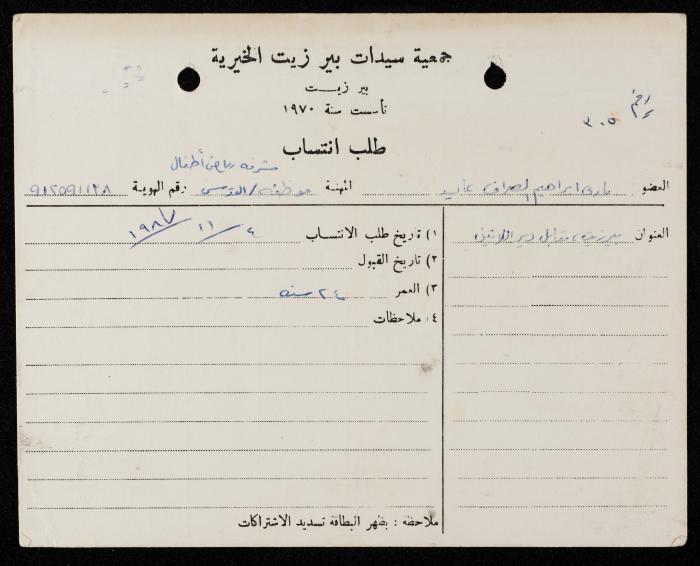 جمعية سيدات بير زيت الخيرية
بير زيت
تأسست سنة ١٩٧٠
رقم
٣٠٥
طلب انتساب
مشرفة رياض أطفال
العضو ماري ابراهيم الصراف عابد المهنة موظفة / القدس رقم الهوية ٩١٢٥٩١١٢٨
العنوان بيرزيت، مقابل دير اللاتين
١) تاريخ طلب الانتساب ٤ / ١١ / ١٩٨٧
٢) تاريخ القبول
٣) العمر ٢٤ سنه
٤) ملاحظات
ملاحظة : بظهر البطاقة تسديد الاشتراكات